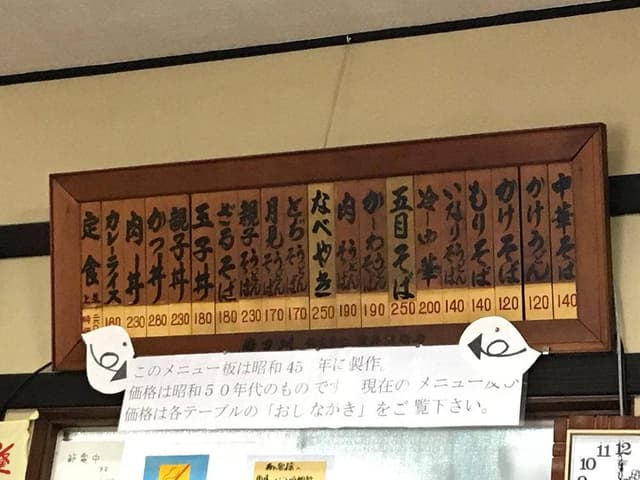 中華そば 140
かけうどん 120
かけそば 120
もりそば 140
いなりうどんそば 140
冷し中華 200
五目そば 250
かしわうどんそば 190
肉うどんそば 190
なべやき 250
とじうどんそば 170
月見うどんそば 170
親子うどんそば 230
ざるそば 180
玉子丼 180
親子丼 230
かつ丼 280
肉丼 230
カレーライス 160
定食
このメニュー板は昭和45 年に製作。
価格は昭和50年代のものです 現在の メニュー及び
価格は各テーブルの「おしながき」をご覧下さい。
節電中
12
11
10
9